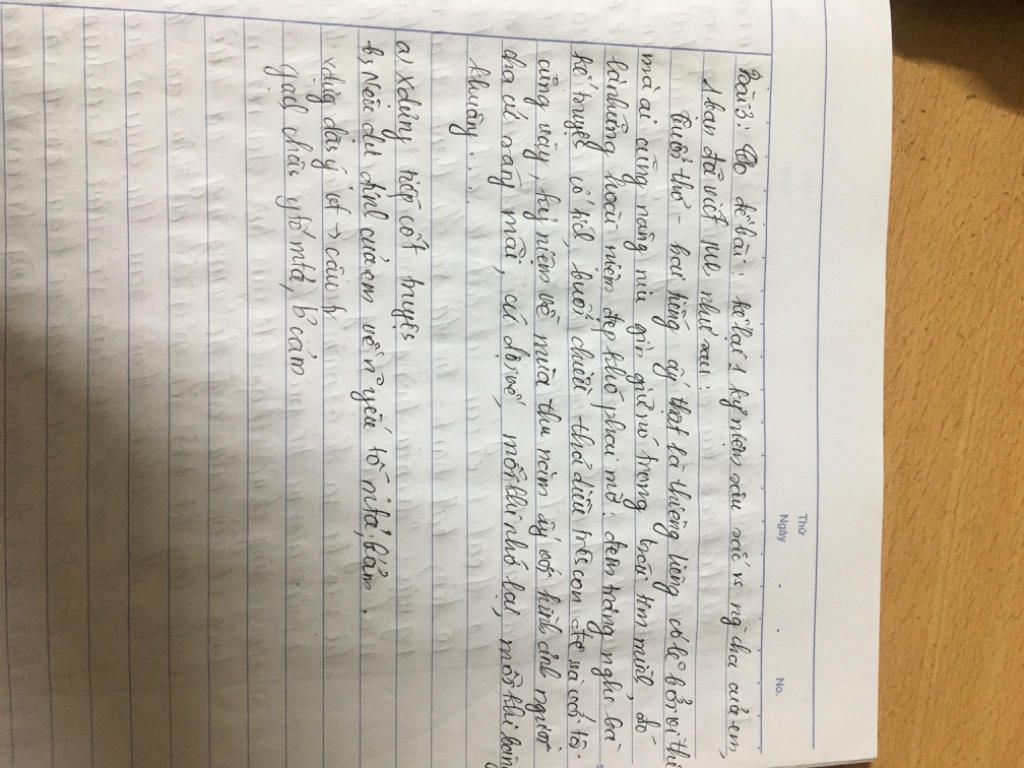 Thứ
Ngày . . No.
Bài 3: Có đề bài: kể lại 1 kỷ niệm sâu sắc vs ng cha của em,
1 bạn đã viết như sau:
Tuổi thơ - hai tiếng ấy thật là thiêng liêng có lẽ bởi vì thế
mà ai cũng nâng niu gìn giữ nó trong trái tim mình, đó
là những hoài niệm đẹp khó phai mờ: đêm trăng nghe bà
kể truyện cổ tích, buổi chiều thả diều trên con đê và với tô
cũng vậy, kỷ niệm về mùa thu năm ấy với hình ảnh người
cha cứ ... mãi, cứ dội về, mỗi khi nhớ lại, mỗi khi bâng
khuâng ...
a, Xdựng tiếp cốt truyện
b, Nêu dự định của em về n yếu tố mtả, b cảm.
xdựng dàn ý vt → câu h
gạch chân ytố mtả, b cảm